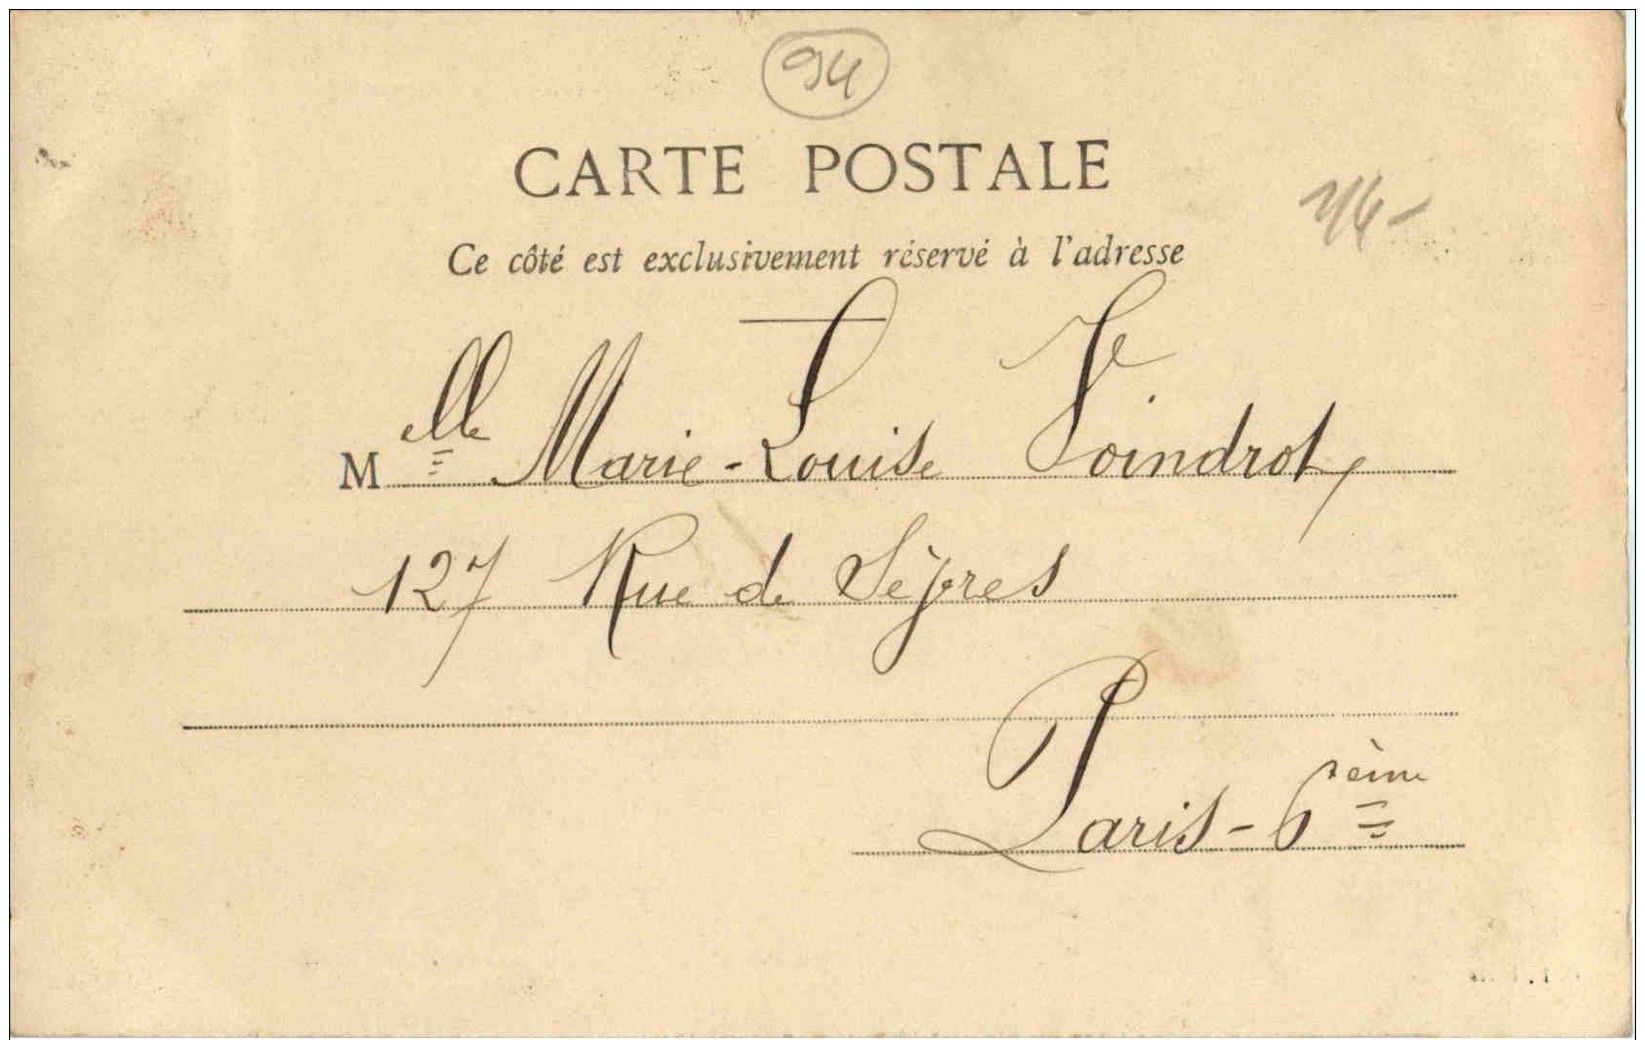 94
CARTE POSTALE
Ce côté est exclusivement réservé à l'adresse
Melle Marie-Louise Voindrot,
127 Rue de Sèvres
Paris-6ème